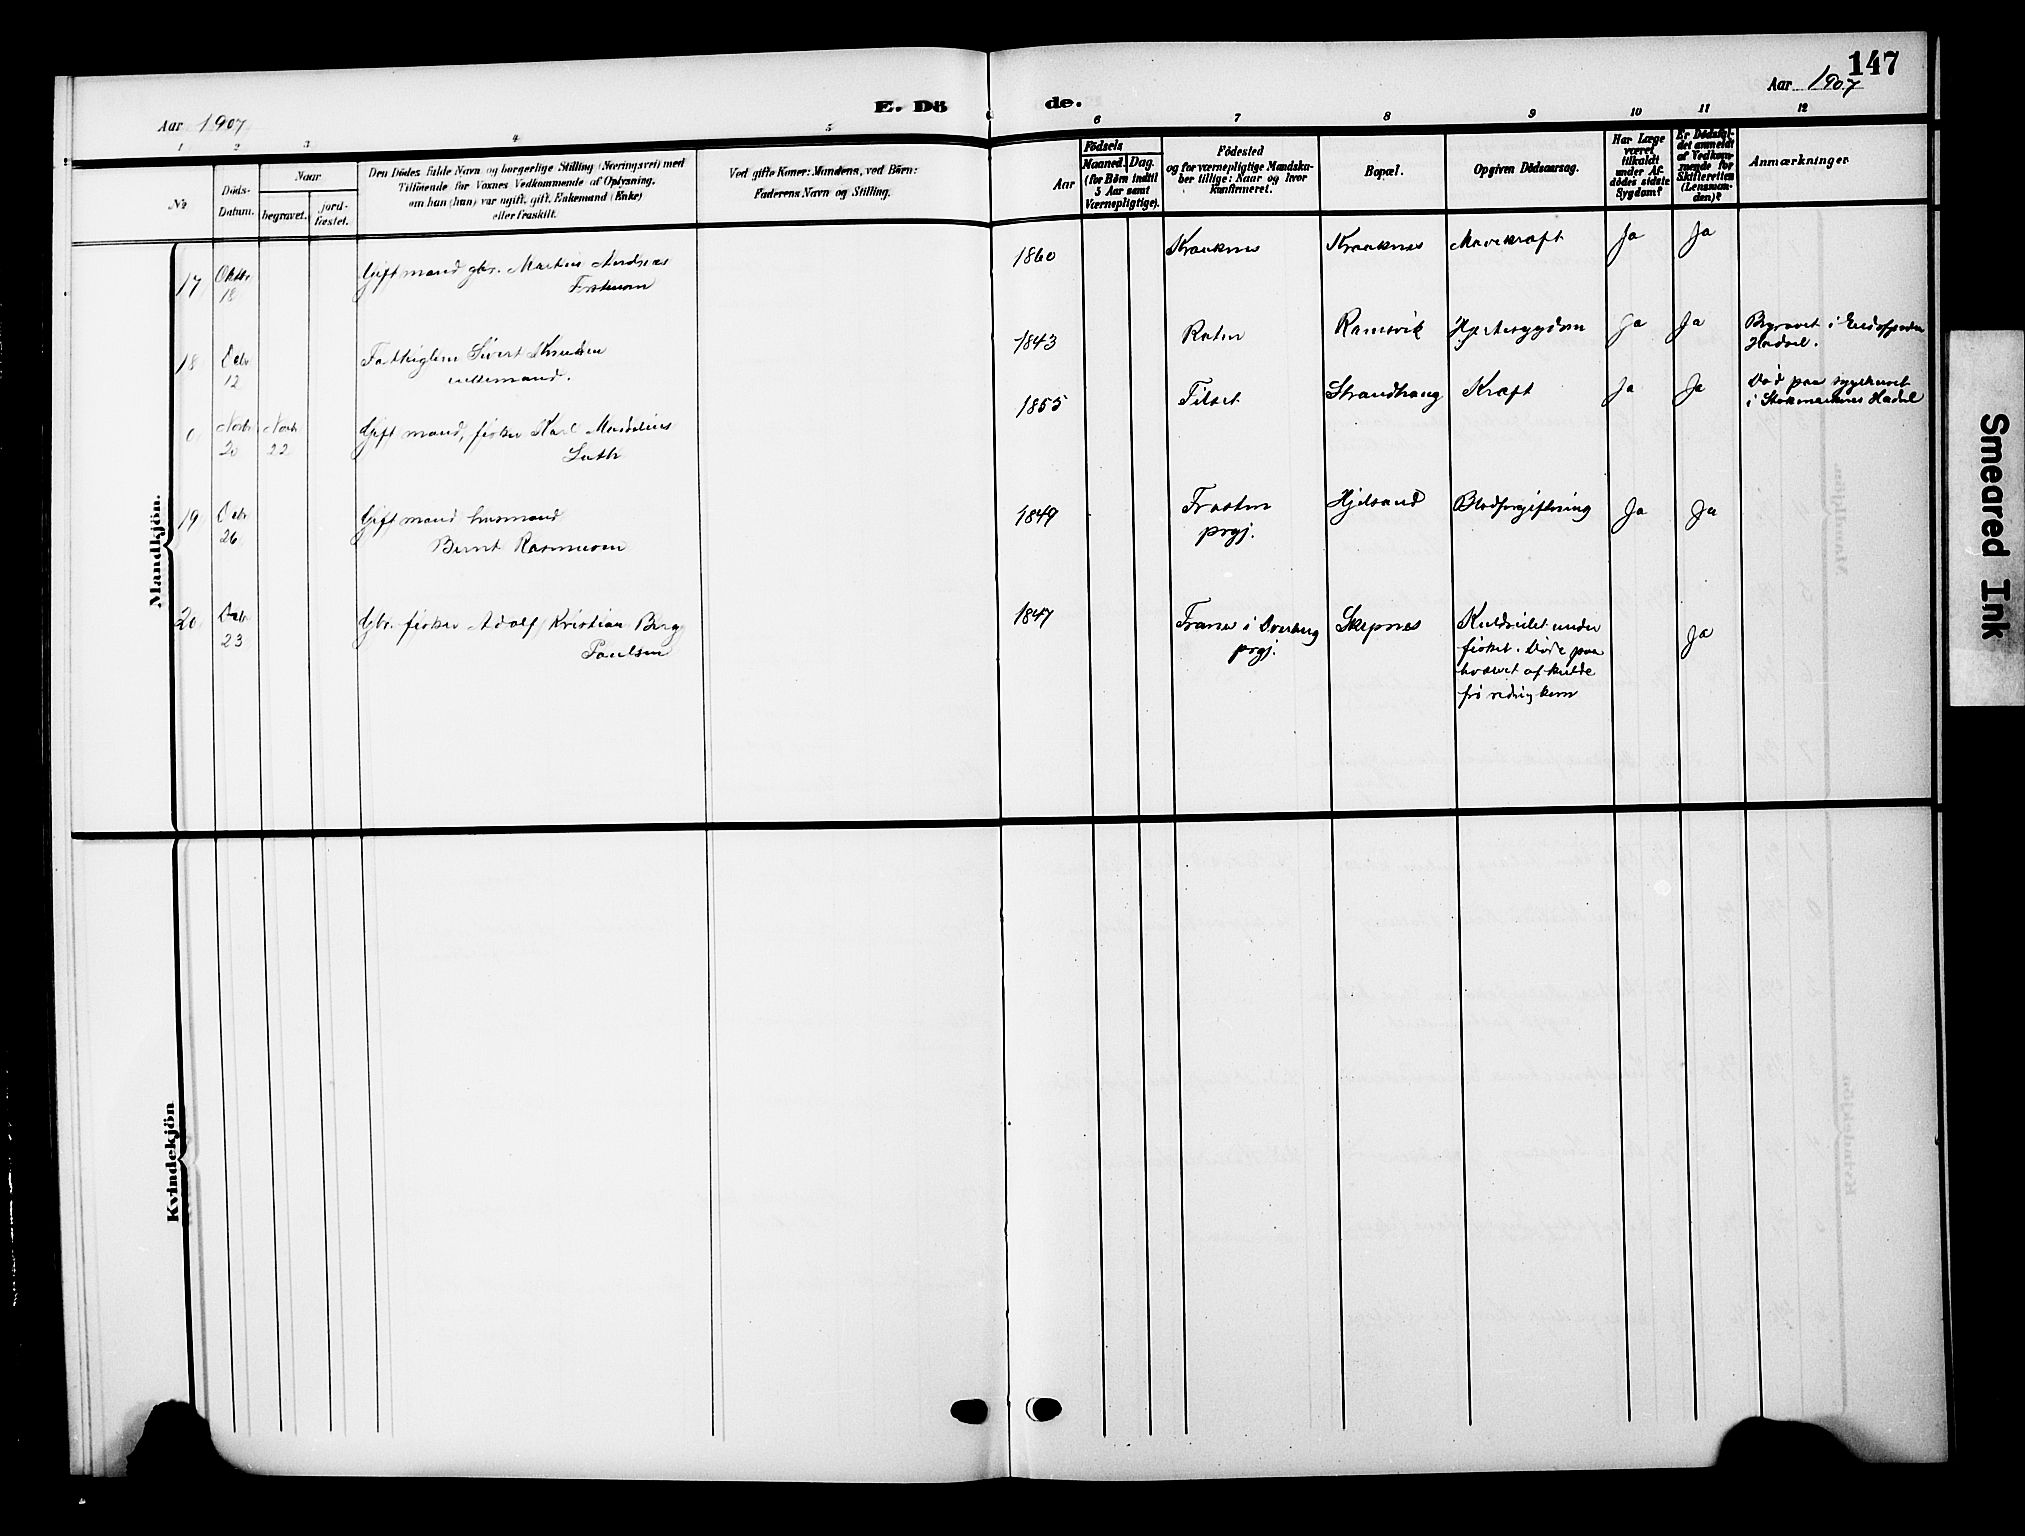 147
Aar 1907
E. Dö
de.
Aar 1907
1 2 3 4 5 6 7 8 9 10 11 12
№
Döds-
Datum.
Naar
begravet.
jord-
fæstet.
Den Dödes fulde Navn og borgerlige Stilling (Næringsvei) med
Tilföiende for Voxnes Vedkommende af Oplysning,
om han (hun) var ugift, gift, Enkemand (Enke)
eller fraskilt.
Ved gifte Koner: Mandens, ved Börn:
Faderens Navn og Stilling.
Aar
Födsels
Maaned. Dag.
(for Börn indtil
5 Aar samt
Værnepligtige).
Födested
og for værnepligtige Mandska-
ber tillige: Naar og hvor
konfirmeret.
Bopæl.
Opgiven Dödsaarsag.
Har Læge
været
tilkaldt
under Af-
dödes sidste
Sygdom?
Er Dödsfal-
det anmeldt
af Vedkom-
mende for
Skifteretten
(Lensman-
den)?
Anmærkninger
Mandkjön.
17
Oktbr
18
Gift mand gbr. Martin Andreas
1860
Kraaknes
Kraaknes
Mavekræft
Ja
Ja
18
Debr
12
Fattiglem Sivert Knudsen
enkemand.
1843
Ramsvik
Hjertesygdom
Ja
Ja
Begravet i
Hadsel.
0
Novbr
20
Novb
22
Gift mand, fisker Karl
1855
Tilset
Strandhaug
Kræft
Ja
Ja
Död paa sygehuset
i Stokmarknes Hadsel
19
Debr
26
Gift mand husmand
Bernt Rasmussen
1849
Trosten
prgj.
Hjelsand
Blodforgiftning
Ja
Ja
20
Debr
23
Gbr. fisker Adolf Kristian Berg
Paulsen
1847
i Overberg
prgj.
Skepnes
Kuldseilet under
fisket. Döde paa
hvælvet af kulde
för redning kom
Ja
Kvindekjön
Smeared Ink